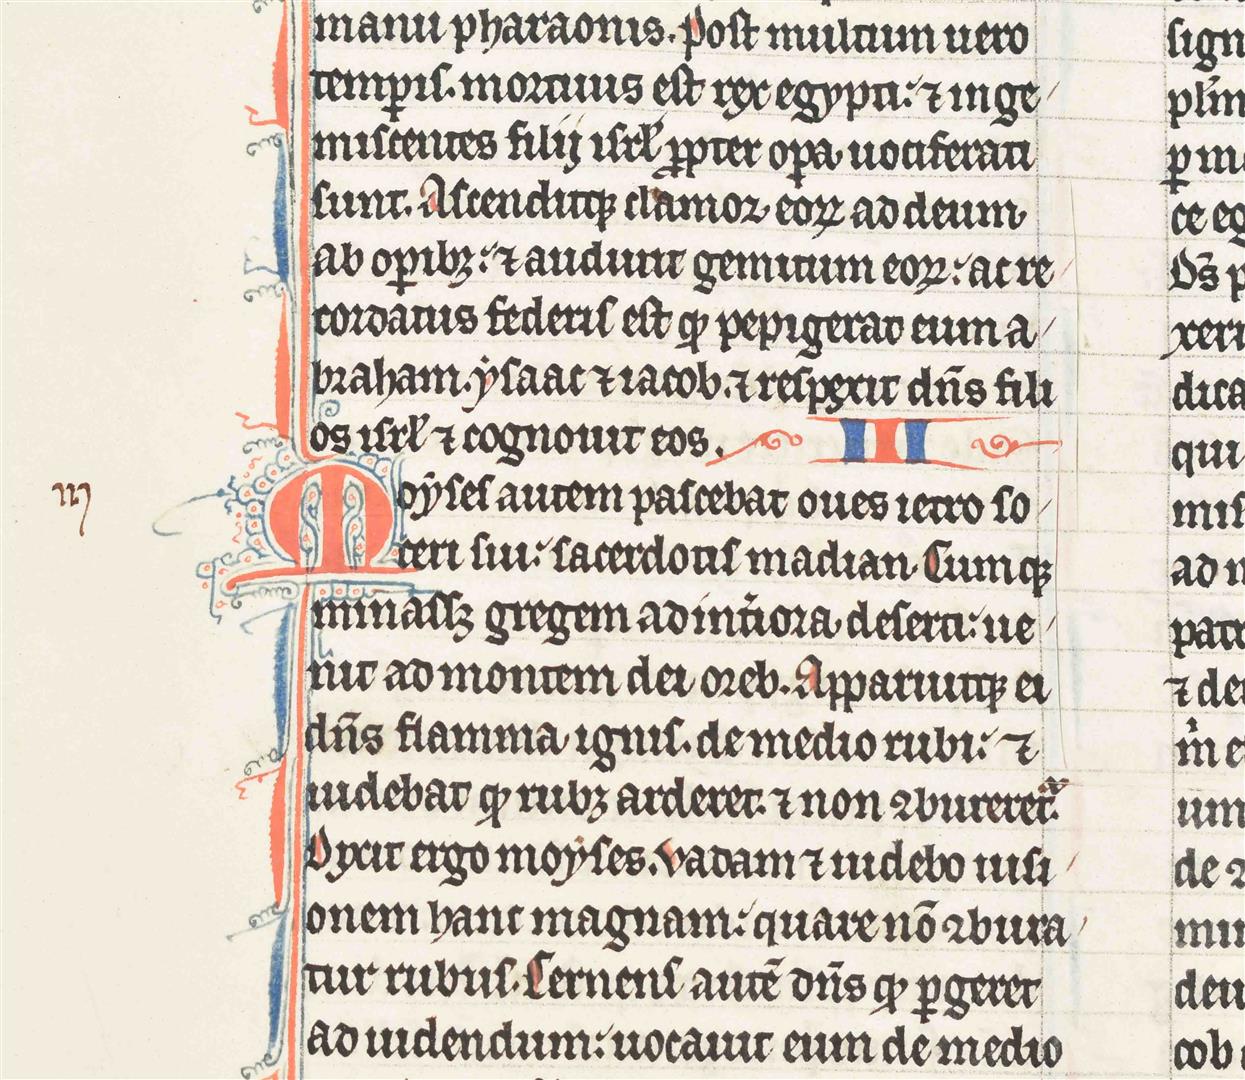 manu pharaonis. Post multum uero
temp̲is. mortuus est rex egypti: ⁊ inge
miscentes filij isrl̄ ꝓpter oꝑa uociferati
sunt. Ascenditqꝫ clamor eoꝝ ad deum
ab oꝑibꝫ: ⁊ audiuit gemitum eoꝝ: ac re
cordatus federis est qͦ pepigerat cum a
braham. ẏsaac ⁊ iacob. ⁊ respexit dn̄s fili
os isrl̄ ⁊ cognouit eos. III
iij
Moẏses autem pascebat oues ietro so
ceri sui: sacerdotis madian. Cumqꝫ
minassꝫ gregem ad int̾iora deserti: ue
nit ad montem dei oreb. Apparuitqꝫ ei
dn̄s flamma ignis. de medio rubi: ⁊
uidebat ꝙ rubꝫ arderet. ⁊ non ꝯbureret᷑.
Dixit ergo moẏses. Vadam ⁊ uidebo uisi
onem hanc magnam: quare nō ꝯbura
tur rubus. Cernens autē dn̄s ꝙ ꝑgeret
ad uidendum: uocauit eum de medio
sign
pl̄m
ce eg
Ds̄ p
xeri
dica
qui
mis
ad n
patr
⁊ deu
m̾ e
um
de ꝯ
min
deu
cob